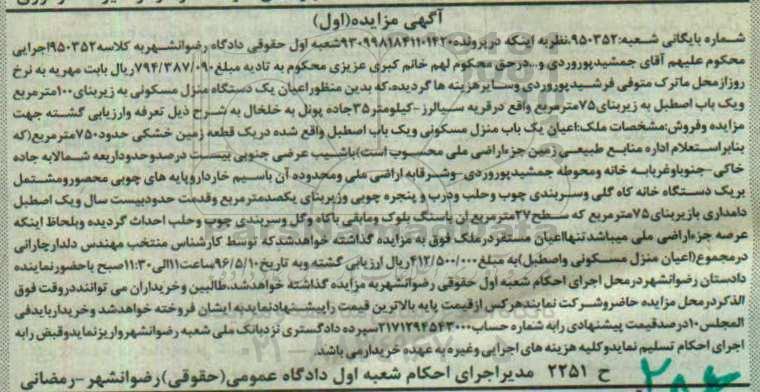 آگهی مزایده(اول)
شماره بایگانی شعبه:۹۵۰۳۵۲،نظربه اینکه درپرونده۹۳۰۹۹۸۱۸۴۱۱۰۱۴۲۰شعبه اول حقوقی دادگاه رضوانشهربه کلاسه۹۵۰۳۵۲اجرایی
محکوم علیهم آقای جمشیدپوروردی و...درحق محکوم لهم خانم کبری عزیزی محکوم به تادیه مبلغ۷۹۴/۳۸۷/۰۹۰ریال بابت مهریه به نرخ
روزازمحل ماترک متوفی فرشیدپوروردی وسایرهزینه ها گردیده،که بدین منظوراعیان یک دستگاه منزل مسکونی به زیربنای۱۰۰مترمربع
ویک باب اصطبل به زیربنای۷۵مترمربع واقع درقریه سیالرز-کیلومتر۳۵جاده پونل به خلخال به شرح ذیل تعرفه وارزیابی گشته جهت
مزایده وفروش:مشخصات ملک:اعیان یک باب منزل مسکونی ویک باب اصطبل واقع شده دریک قطعه زمین خشکی حدود۷۵۰مترمربع(که
بنابراستعلام اداره منابع طبیعی زمین جزءاراضی ملی محسوب است)باشیب عرضی جنوبی بیست درصدوحدوداربعه شمالابه جاده
خاکی-جنوباوغربابه خانه ومحوطه جمشیدپوروردی-وشرقابه اراضی ملی ومحدوده آن باسیم خارداروپایه های چوبی محصورومشتمل
بریک دستگاه خانه کاه گلی وسربندی چوب وحلب ودرب و پنجره چوبی وزیربنای یکصدمترمربع وقدمت حدودبیست سال ویک اصطبل
دامداری بازیربنای۷۵مترمربع که سطح۲۷مترمربع آن باسنگ بلوک ومابقی باکاه وگل وسربندی چوب وحلب احداث گردیده وبلحاظ اینکه
عرصه جزءاراضی ملی میباشدتنهااعیان مستقردرملک فوق به مزایده گذاشته خواهدشدکه توسط کارشناس منتخب مهندس دلدارچارانی
درمجموع(اعیان منزل مسکونی واصطبل)به مبلغ۴۱۲/۵۰۰/۰۰۰ریال ارزیابی گشته وبه تاریخ۹۶/۵/۱۰ساعت۱۱الی۱۱:۳۰صبح باحضورنماینده
دادستان رضوانشهردرمحل اجرای احکام شعبه اول حقوقی رضوانشهربه مزایده گذاشته خواهدشد،طالبین وخریداران می تواننددروقت فوق
الذکردرمحل مزایده حاضروشرکت نمایندهرکس ازقیمت پایه بالاترین قیمت راپیشنهادنمایدبه ایشان فروخته خواهدشد وخریداربایدفی
المجلس۱۰درصدقیمت پیشنهادی رابه شماره حساب۲۱۷۱۲۹۴۵۴۳۰۰۰سپرده دادگستری نزدبانک ملی شعبه رضوانشهرواریزنمایدوقبض رابه
اجرای احکام تسلیم نمایدوکلیه هزینه های اجرایی وغیره به عهده خریدارمی باشد.
ح ۲۲۵۱ مدیراجرای احکام شعبه اول دادگاه عمومی(حقوقی)رضوانشهر-رمضانی